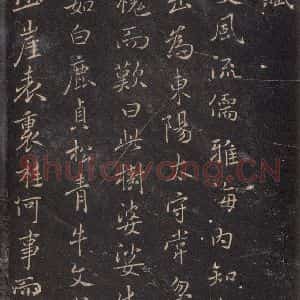 賦
文風流儒雅海內知
出為東陽太守常忽
槐而歎曰此樹婆娑生
如白鹿貞松青牛文
山崖表裏桂何事而
Shufawang.CN